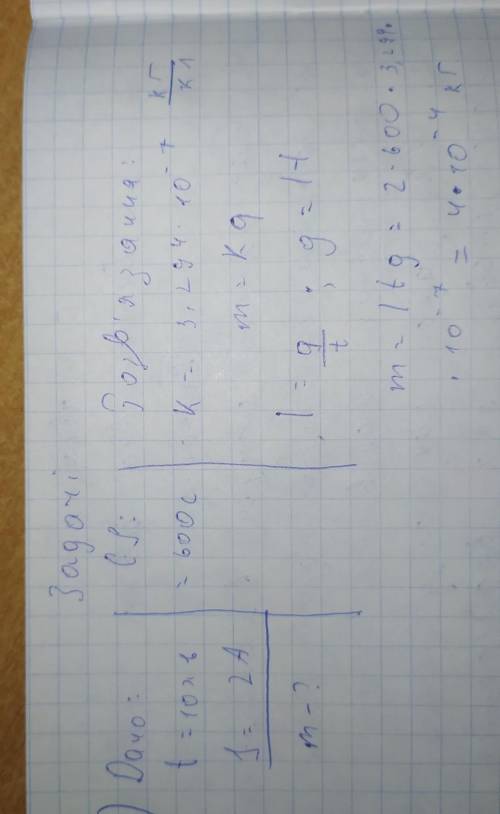 Задачі
) Дано:
t = 10хв
I = 2A
m - ?
СІ:
= 600с
Розв'язання:
K = 3,294 · 10⁻⁷ кг/кл
m = kq
I = q/t ; q = It
m = Itq = 2 · 600 · 3,294
· 10⁻⁷ = 4 · 10⁻⁴ кг